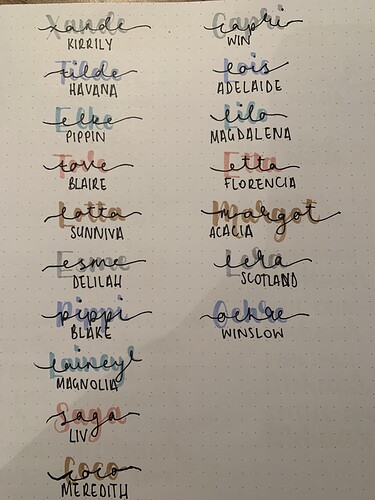 Xande
KIRRILY
Tilde
HAVANA
Elke
PIPPIN
Tove
BLAIRE
Lotta
SUNNIVA
Esme
DELILAH
Pippi
BLAKE
Lainey
MAGNOLIA
Saga
LIV
Coco
MEREDITH
Capri
WIN
Lois
ADELAIDE
Lilo
MAGDALENA
Etta
FLORENCIA
Margot
ACACIA
SCOTLAND
Ochre
WINSLOW